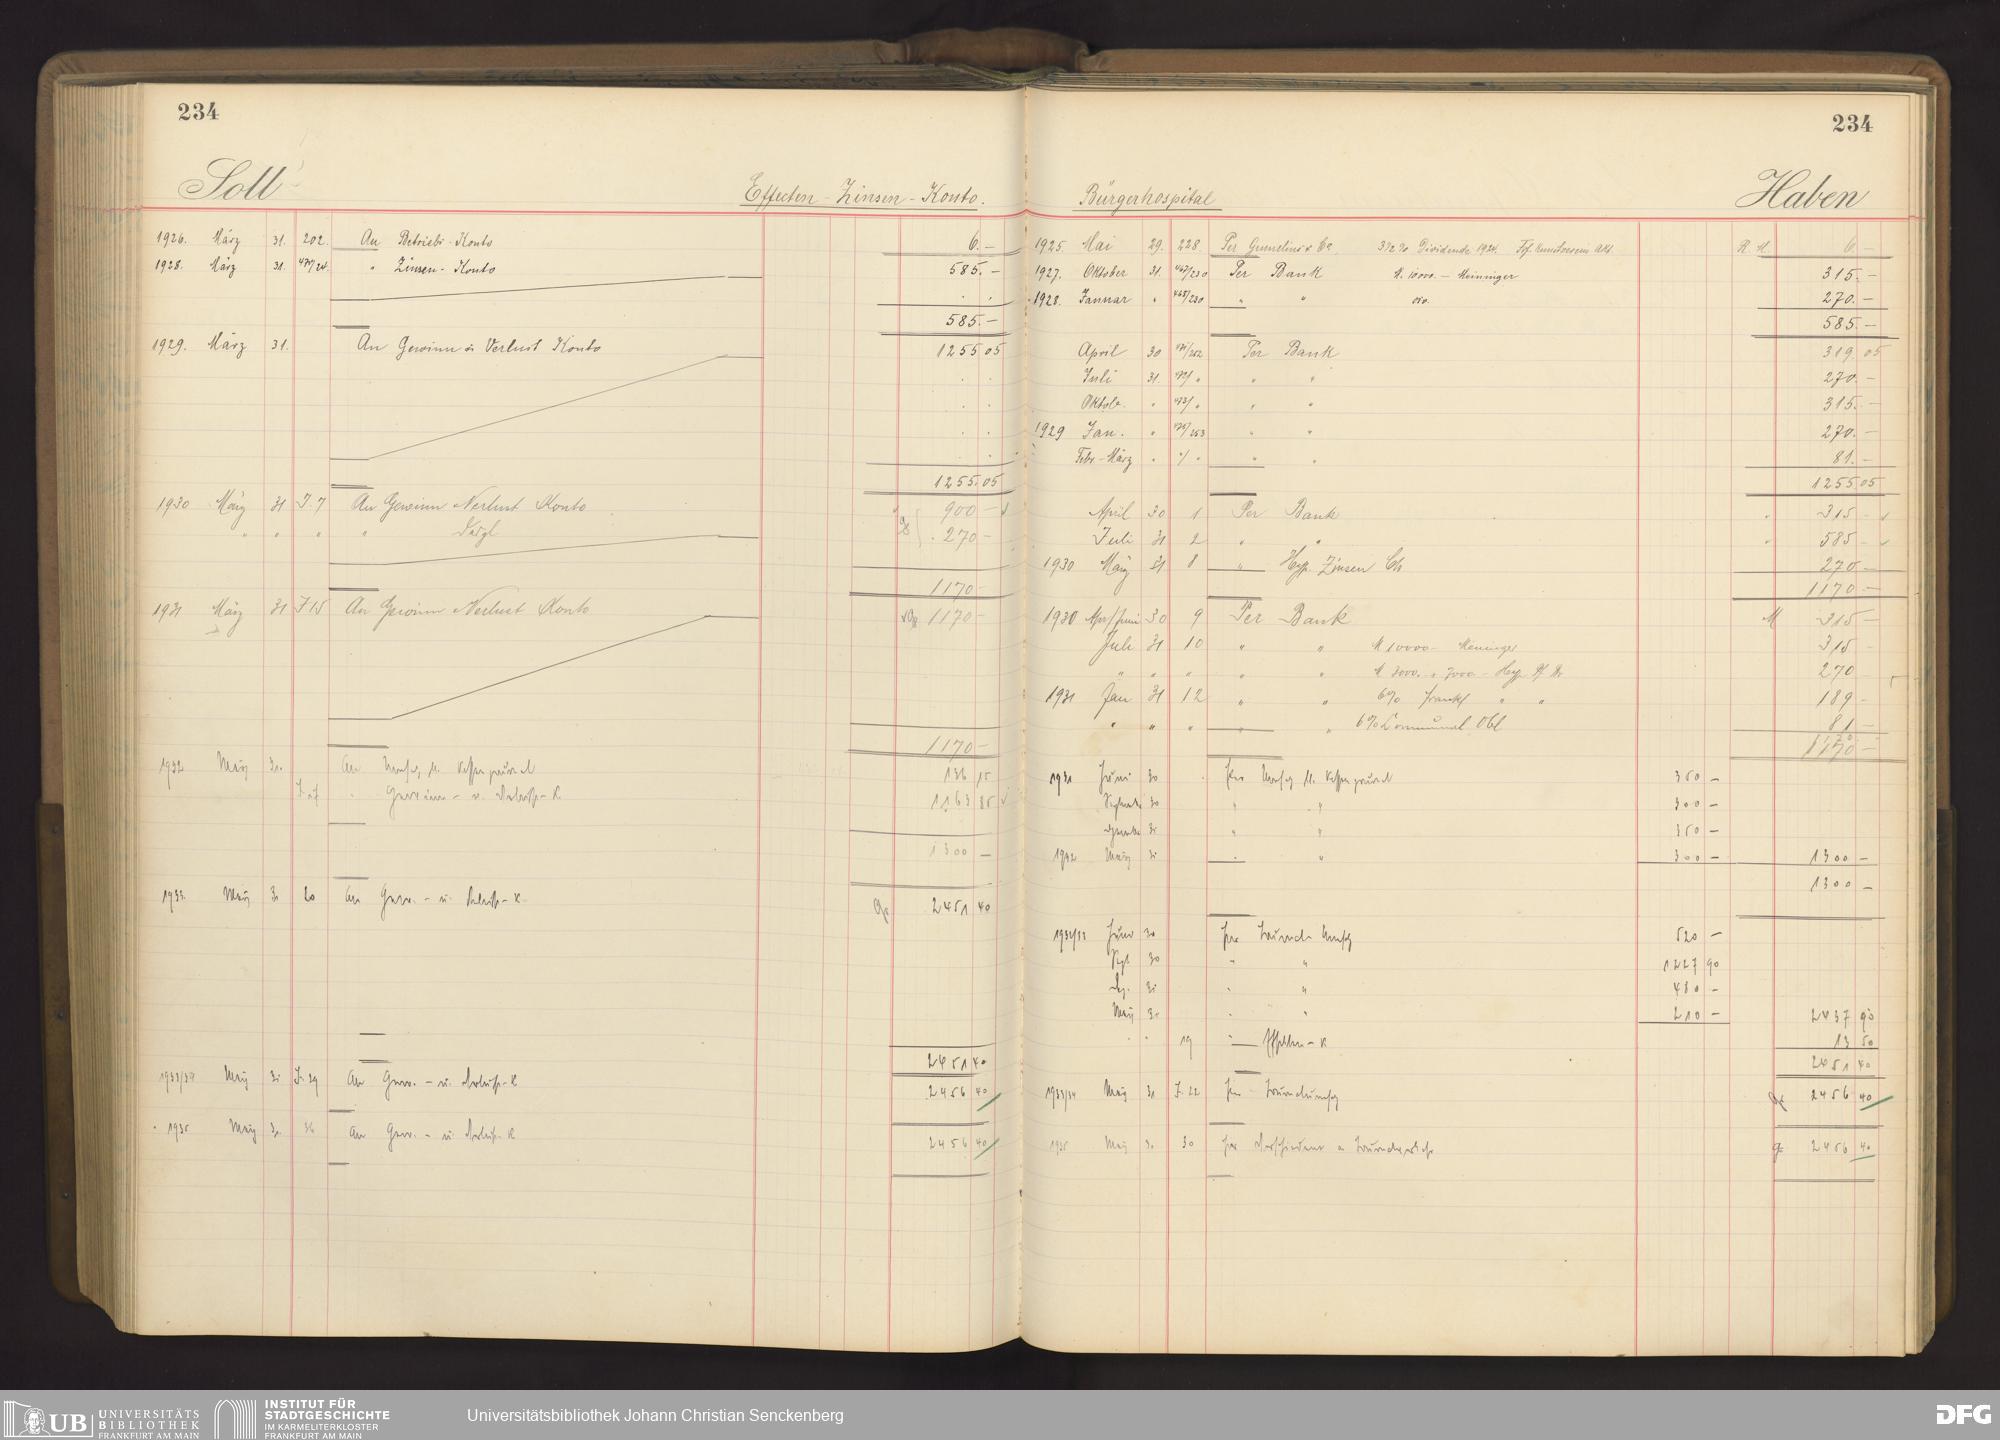 234
Soll
Effecten-Zinsen-Konto.
1926. März 31. 202. An Betriebs-Konto 6.—
1928. März 31. 474/24. " Zinsen-Konto 585.—
585.—
1929. März 31. An Gewinn & Verlust Konto 1255 05
1255.05
1930 März 31 J.7 An Gewinn Verlust Konto 900 —
" " " " 270 —
1170 —
1931 März 31 J 15 An Gewinn Verlust Konto 1170 —
1170 —
1932 März 31. An 136 15
" Gewinn- u. Verlust-K. 1163 85
1300 —
1933. März 31 20 An Gew.- u. Verlust-K. 2451 40
2451 40
1933/34 März 31 J. 29 An Gew.- u. Verlust-K 2456 40
1935 März 31. 36 An Gew.- u. Verlust-K 2456 40
234
Haben
Bürgerhospital
1925 Mai 29. 228. Per 3 1/2 % Dividende 1924. R. M. 6 —
1927. Oktober 31. 467/230 Per Bank M. 10000.— Meininger 315.—
1928. Januar " 468/230 " " do. 270.—
585.—
April 30 471/252 Per Bank 319.05
Juli 31. 472/" " " 270.—
Oktob. " 473/" " " 315.—
1929 Jan. " 475/253 " " 270.—
Febr-März " "/" " " 81.—
1255.05
April 30 1 Per Bank 315 —
Juli 31 2 " " 585 —
1930 März 31 8 " Hyp. Zinsen Cto 270 —
1170 —
1930 Apr/Juni 30 9 Per Bank M 315 —
Juli 31 10 " " M 10000.— Meininger 315 —
" " " " " M 3000. " 7000.— Hyp Pf Br 270
1931 Jan 31 12 " " 6% Frankf " " 189 —
" " " " " 6% Communal Obl 81 —
1170 —
1931 Juni 30 Per 350 —
Septemb. 30 " " 300 —
Dezemb. 31 " " 350 —
1932 März 31 " " 300 — 1300 —
1300 —
1932/33 Juni 30 Per 520 —
Sept 30 " " 1227 90
Dez. 31 " " 480 —
März 31 " " 210 — 2437 90
" " 19 " Effekten-K 13 50
2451 40
1933/34 März 31 J. 22 Per 2456 40
1935 März 31. 30 Per 2456 40
UB UNIVERSITÄTS
BIBLIOTHEK
FRANKFURT AM MAIN
INSTITUT FÜR
STADTGESCHICHTE
IM KARMELITERKLOSTER
FRANKFURT AM MAIN
Universitätsbibliothek Johann Christian Senckenberg
DFG